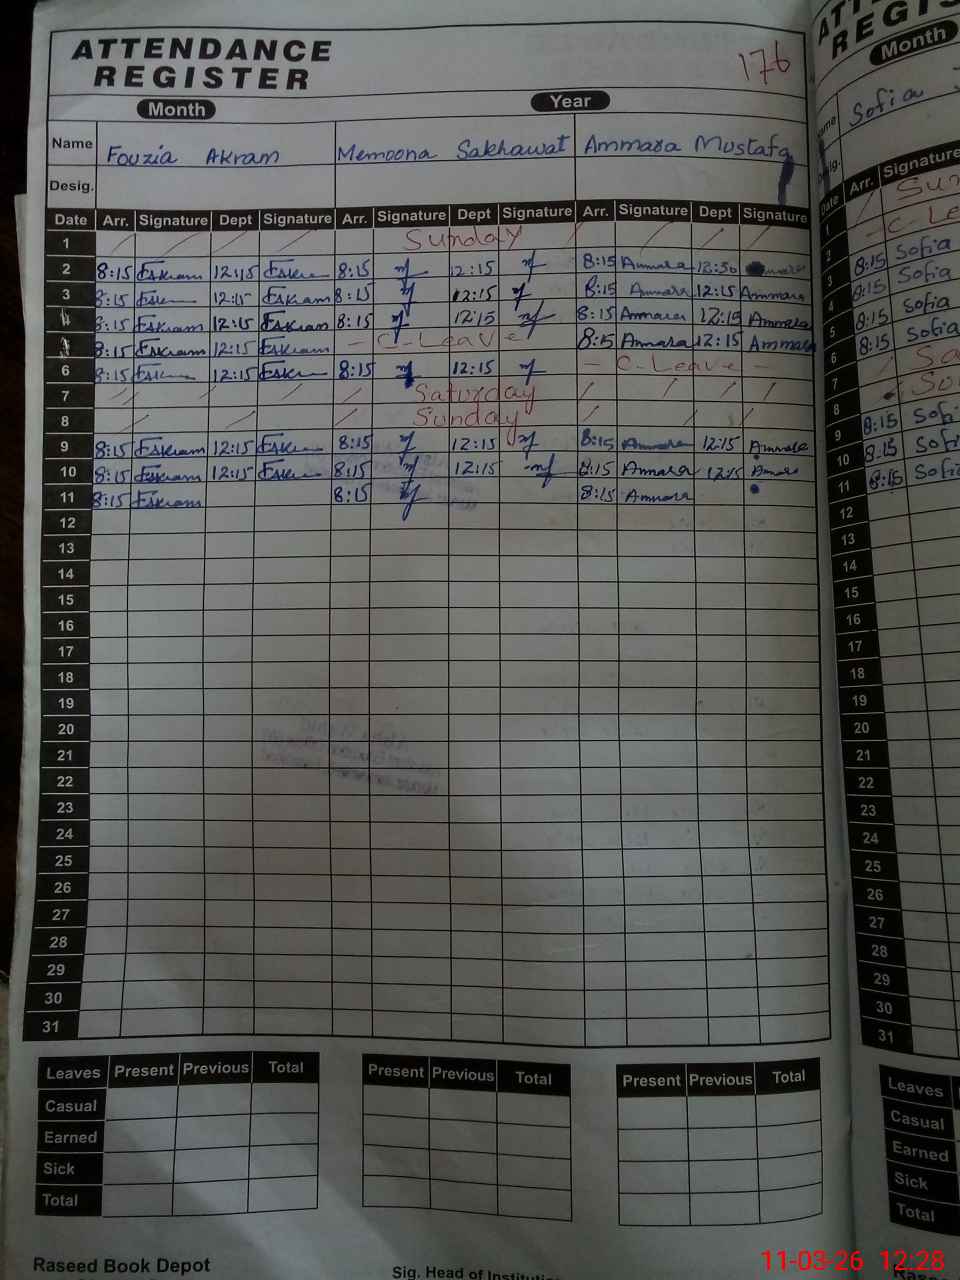 ATTENDANCE
REGISTER
176
Month Year
Name Fouzia Akram Memoona Sakhawat Ammara Mustafa
Desig.
Date Arr. Signature Dept Signature Arr. Signature Dept Signature Arr. Signature Dept Signature
1 Sunday
2 8:15 Eskram 12:15 8:15 12:15 8:15 Ammara 12:30 Ammara
3 8:15 12:15 Eskram 8:15 12:15 8:15 Ammara 12:15 Ammara
4 8:15 Eskram 12:15 Eskram 8:15 12:15 8:15 Ammara 12:15 Ammara
8:15 Eskram 12:15 Eskram - C-Leave 8:15 Ammara 12:15 Ammara
6 8:15 12:15 8:15 12:15 - C-Leave -
7 Saturday
8 Sunday
9 8:15 Eskram 12:15 8:15 12:15 8:15 Ammara 12:15 Ammara
10 8:15 Eskram 12:15 8:15 12:15 8:15 Ammara 12:15 Ammara
11 8:15 Eskram 8:15 8:15 Ammara
12
13
14
15
16
17
18
19
20
21
22
23
24
25
26
27
28
29
30
31
Leaves Present Previous Total Present Previous Total Present Previous Total
Casual
Earned
Sick
Total
Raseed Book Depot
Sig. Head of Institution
Month
Sofia
Date Arr. Signature
1
2 C-Le
3 8:15 Sofia
4 8:15 Sofia
5 8:15 Sofia
6 8:15 Sofia
7
8
9 8:15 Sofi
10 8:15 Sofi
11 8:15 Sofi
12
13
14
15
16
17
18
19
20
21
22
23
24
25
26
27
28
29
30
31
Leaves
Casual
Earned
Sick
Total
11-03-26 12:28